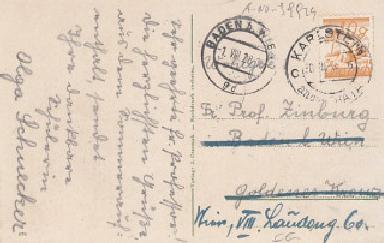 A-NO-3982a
Sehr geehrter Hr. Professor!
Die herzlichsten Grüße
aus dem Sommerauf-
enthalt sendet
Ihre dankbare
Schülerin
Olga Schnecker
BADEN B. WIEN
9d
Hr. Prof. Zinburg
Baden b. Wien
Goldenes Kreuz
Wien, VIII. Laudong. 60.